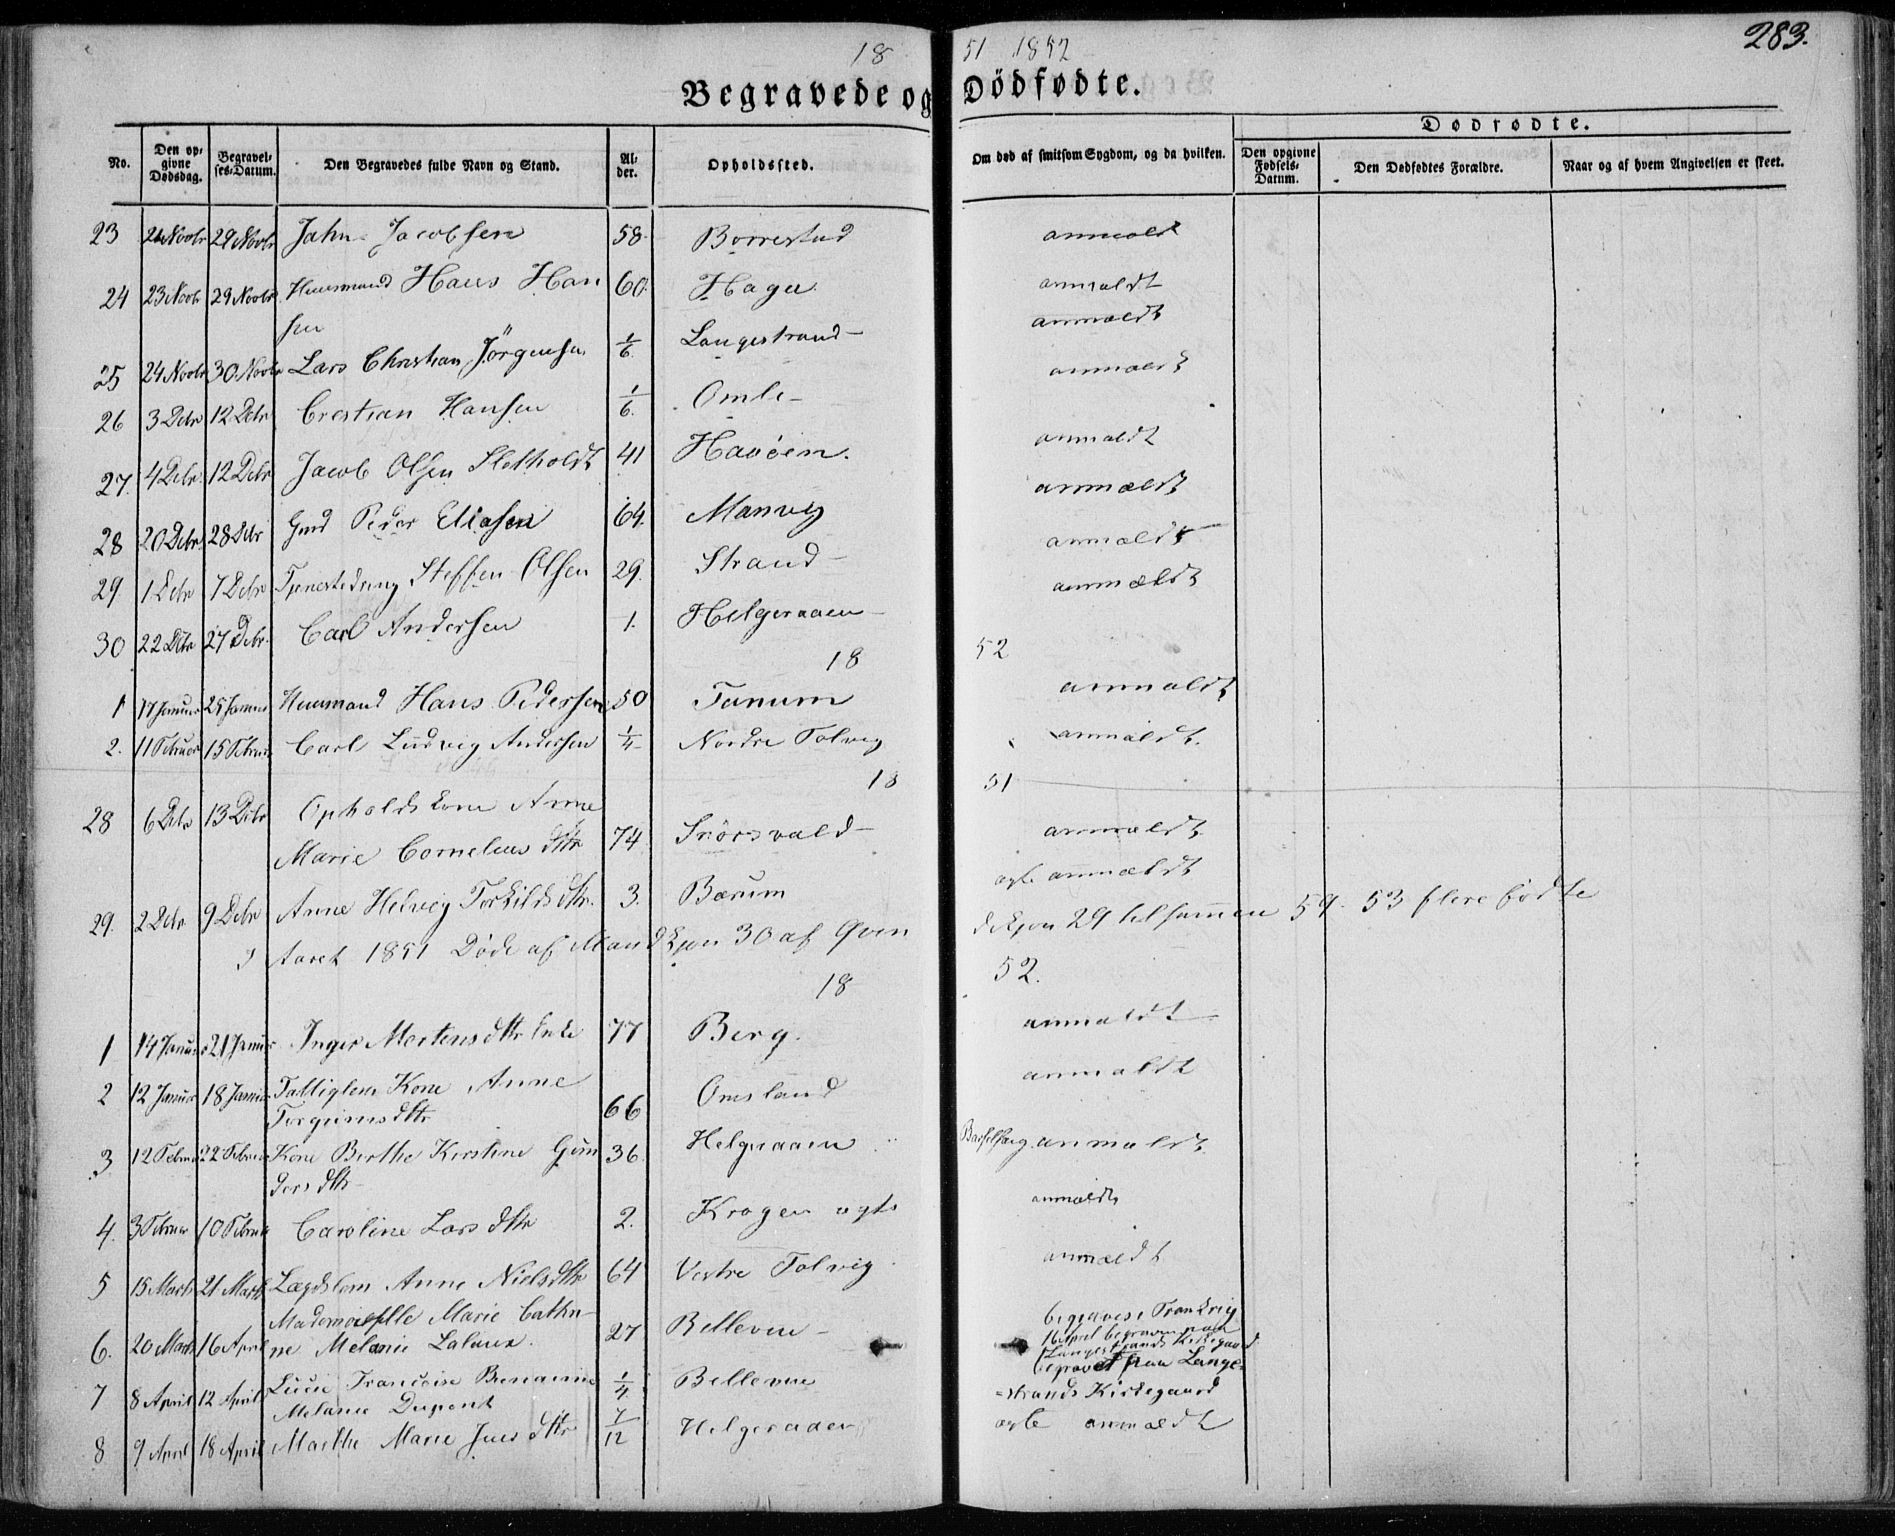 283.
18 51 1852
Begravede og Dödfødte.
Dødfødte.
No. Den opgivne Dødsdag. Begravelses-Datum. Den Begravedes fulde Navn og Stand. Alder. Opholdssted. Om død af smitsom Sygdom, og da hvilken. Den opgivne Fødsels-Datum. Den Dødfødtes Forældre. Naar og af hvem Angivelsen er skeet.
23 Novbr 29 Novbr Jahn Jacobsen 58 Borrestad anmeldt
24 23 Novb 29 Novbr Huusmand Hans Han 60. Hager anmeldt
sen
25 24 Novbr 30 Novbr Lars Christian Jörgensen 1/6. Langestrand - anmældt
26 3 Debr 12 Debr Crestian Hansen 1/6. Omli - anmældt
27. 4 Debr 12 Debr Jacob Olsen Sletholdt 41 Havöen. anmældt
28 20 Debr 28 Debr Gmd Peder Eliasen 64. Manvig anmældt
29 1 Debr 7 Debr Tjenestedreng Steffen Olsen 29. Strand - anmældt
30 22 Debr 27 Debr. Carl Andersen 1. Helgeraaen - anmældt
18 52
1 17 Januar 25 Januar Huusmand Hans Pedersen 50 Tanum anmældt
2. 11 Februar 15 Februar Carl Ludvig Andersen 1/4 Nordre Tolvig anmældt.
18 51
28 6 Debr 13 Debr Opholds Kone Anne
Marie Cornelius dttr 74 Snörsvald - anmældt
29. 2 Debr 9 Debr Anne Helvig Torkilds dttr. 3. Bærum anmældt
I Aaret 1851 Døde af Mandkjøn 30 af Qvin dekjøn 29 tilsammen 59. 53 flere födte
18 52.
1 14 Januar 21 Januar Inger Mortens dttr Enke 77 Berg. anmældt
2 12 Januar 18 Januar Fattiglem Kone Anne
Torgrims dttr 66 Omsland anmældt
3 12 Februar 22 Februar Kone Berthe Kirstine Gun 36. Helgeraaen Barselseng anmældt.
ders dttr
4. 3 Februar 10 Februar Caroline Lars dttr 2. Krogen anmældt
5 15 Marts 21 Marts Lægdslem Anne Niels dttr 64 Vestre Tolvig anmældt
Mademoiselle Marie Cathri-
6. 20 Marts 16 April ne Melanie Lalaux. 27 Bellevue - begraves i Frankrig
16 April begraven paa
Langestrands Kirkegaard
7 8 April 12 April Lucie Francoise Benamie 1/4 Bellevue begravet paa Lange-
Melanie Dupont -strands Kirkegaard
8 9 April 18 April Marthe Marie Jens dttr 7/12 Helgeraaen anmældt